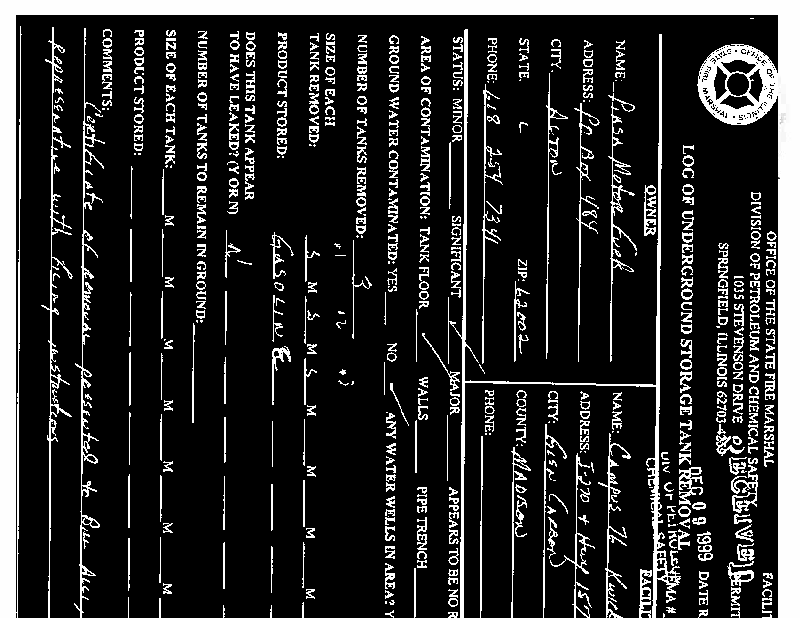 OFFICE OF THE STATE FIRE MARSHAL
DIVISION OF PETROLEUM AND CHEMICAL SAFETY
1035 STEVENSON DRIVE
SPRINGFIELD, ILLINOIS 62703-4259
RECEIVED
DEC 09 1999
DIV OF PETROLEUM
CHEMICAL SAFETY
LOG OF UNDERGROUND STORAGE TANK REMOVAL
OWNER
NAME: Piasa Motor Fuel
ADDRESS: PO Box 484
CITY: ALTON
STATE: L ZIP: 62002
PHONE: 618 254 7341
NAME: Campus 76
ADDRESS: I-270 + Hwy 157
CITY: Glen Carbon
COUNTY: MADISON
PHONE:
STATUS: MINOR SIGNIFICANT MAJOR APPEARS TO BE NO R
AREA OF CONTAMINATION: TANK FLOOR WALLS PIPE TRENCH
GROUND WATER CONTAMINATED: YES NO ANY WATER WELLS IN AREA? Y
NUMBER OF TANKS REMOVED: 3
#1 #2 #3
SIZE OF EACH TANK REMOVED: 5 M 5 M 5 M M M M
PRODUCT STORED: GASOLINE
DOES THIS TANK APPEAR
TO HAVE LEAKED? (Y OR N) N
NUMBER OF TANKS TO REMAIN IN GROUND:
SIZE OF EACH TANK: M M M M M M M
PRODUCT STORED:
COMMENTS: Certificate of removal presented to Bill
Representative with filing instructions